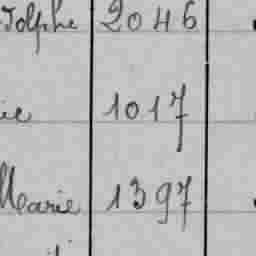 dolphe 2046
ie 1017
Marie 1397